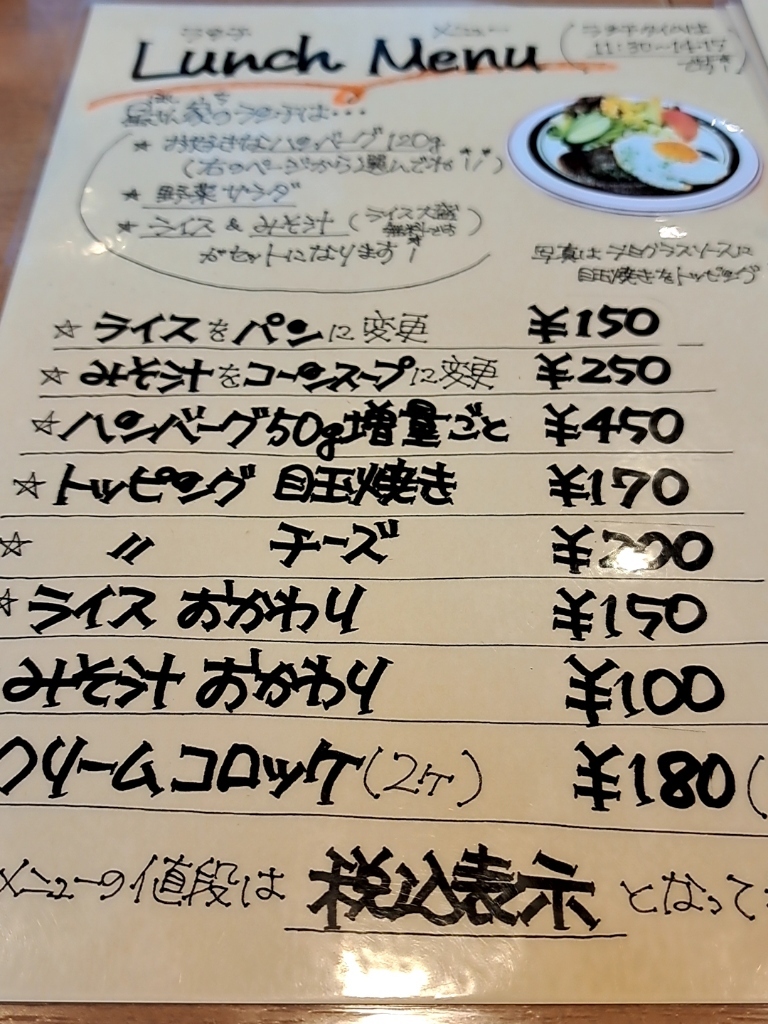 ランチ メニュー
Lunch Menu
ランチタイムは
11:30〜14:15
です!
家のランチは・・・
★ お好きなハンバーグ120g
(右のページから選んでね!!)
★ 野菜サラダ
★ ライス & みそ汁 (ライス大盛
無料です)
がセットになります!
写真はデミグラスソースに
目玉焼きをトッピング
☆ ライスをパンに変更 ¥150
☆ みそ汁をコーンスープに変更 ¥250
☆ ハンバーグ50g増量ごと ¥450
☆ トッピング 目玉焼き ¥170
☆ 〃 チーズ ¥200
☆ ライス おかわり ¥150
みそ汁 おかわり ¥100
クリームコロッケ(2ケ) ¥180(
メニューの値段は 税込表示 となって